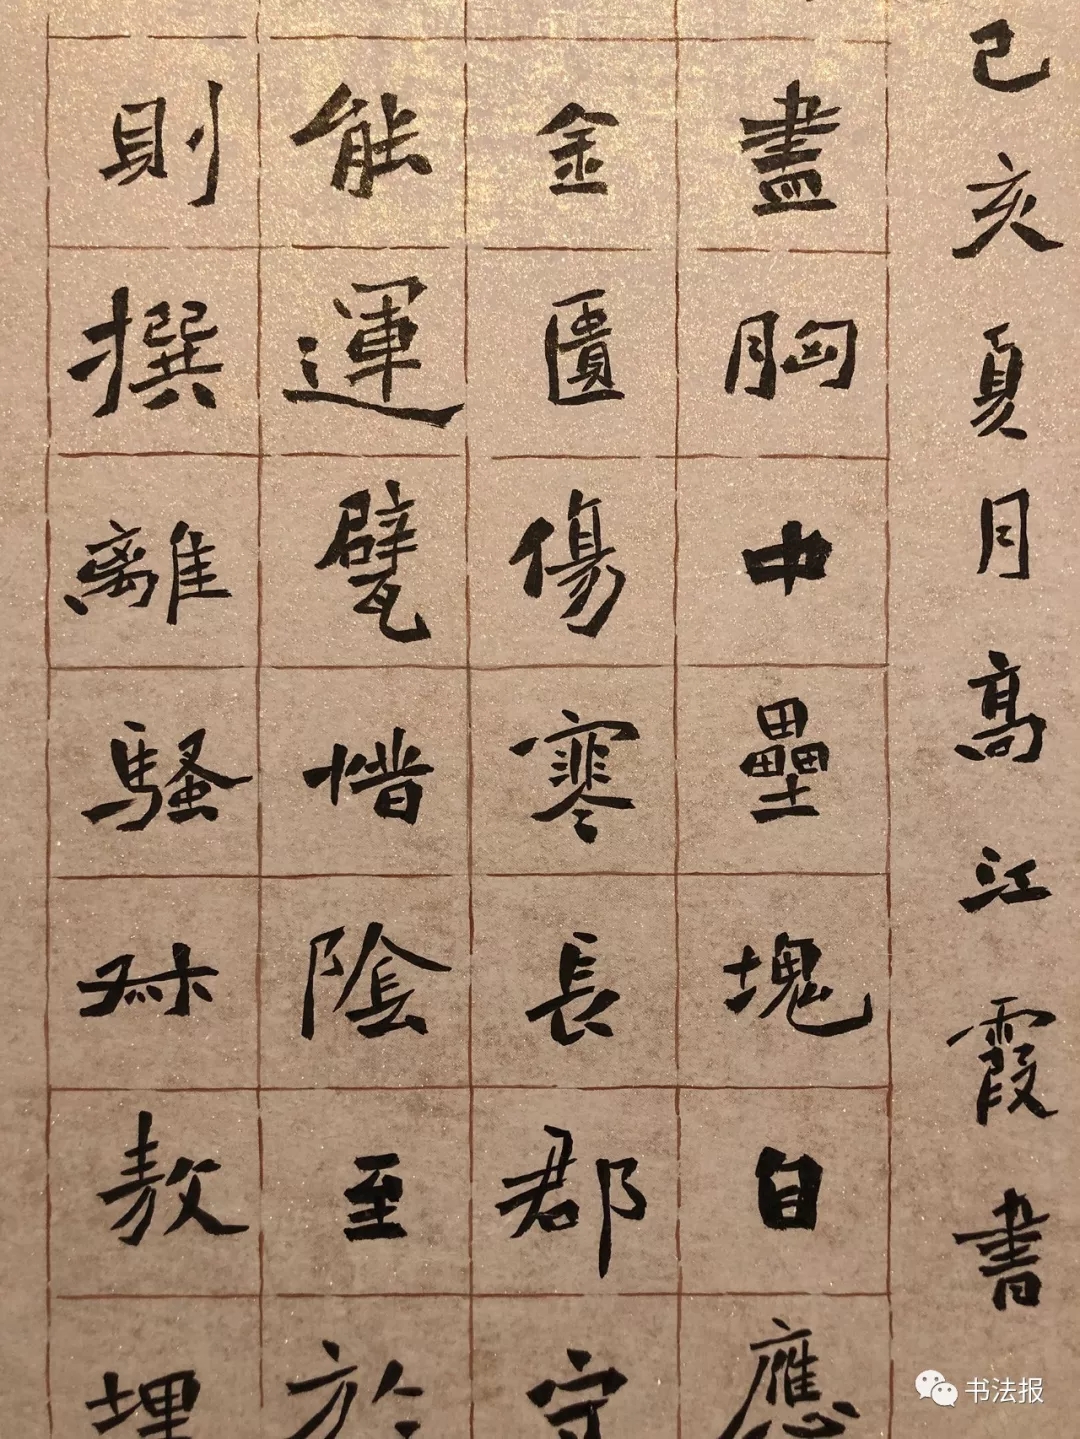 則撰離騷叔敖埋
能運甓惜陰至於
金匱傷寒長郡守
盡胸中壘塊自應
己亥夏月高江霞書
书法报